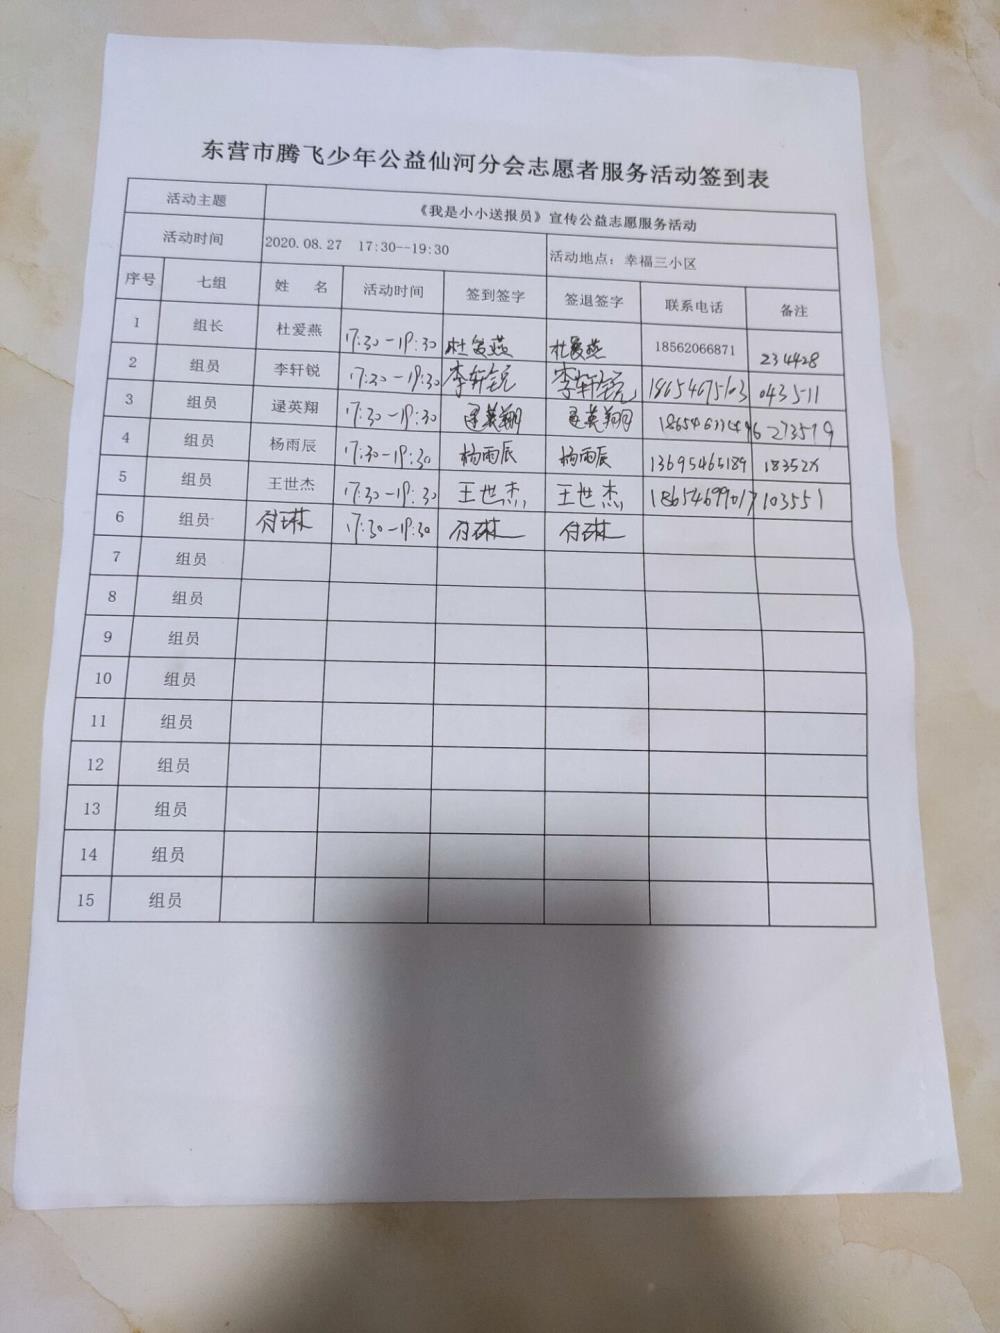 东营市腾飞少年公益仙河分会志愿者服务活动签到表
活动主题 《我是小小送报员》宣传公益志愿服务活动
活动时间 2020.08.27 17:30--19:30 活动地点：幸福三小区
序号 七组 姓 名 活动时间 签到签字 签退签字 联系电话 备注
1 组长 杜爱燕 17:30-19:30 杜爱燕 杜爱燕 18562066871 234428
2 组员 李轩锐 17:30-19:30 李轩锐 李轩锐 18654675103 043511
3 组员 逯英翔 17:30-19:30 逯英翔 逯英翔 273519
4 组员 杨雨辰 17:30-19:30 杨雨辰 杨雨辰 13695465189
5 组员 王世杰 17:30-19:30 王世杰 王世杰 18654699017 103551
6 组员 付琳 17:30-19:30 付琳 付琳
7 组员
8 组员
9 组员
10 组员
11 组员
12 组员
13 组员
14 组员
15 组员